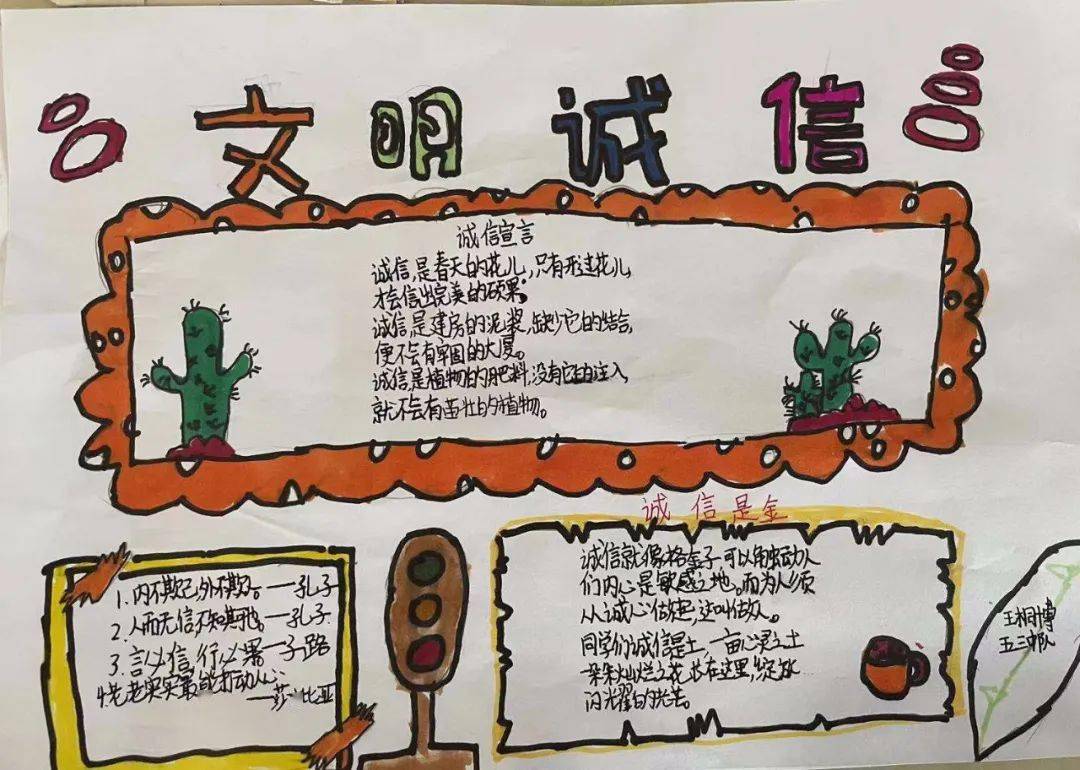 文明诚信
诚信宣言
诚信,是春天的花儿,只有形过花儿,
才会信出完美的硕果;
诚信,是建房的泥浆,缺少它的结合,
便不会有牢固的大厦。
诚信,是植物的肥料,没有它的注入,
就不会有苗壮的植物。
诚信是金
1.内不欺己,外不欺。——孔子
2.人而无信不知其。——孔子
3.言必信,行必果——子路
4.老老实实最能打动人心。
——莎 比亚
诚信就像格金子 可以触动人
们内心是敏感之地。而为人须
从诚心做起,这叫做人。
同学们诚信是土,一亩心灵之土
朵朵灿烂之花 在这里,绽放
闪光耀的光芒。
王桐博
五三中队